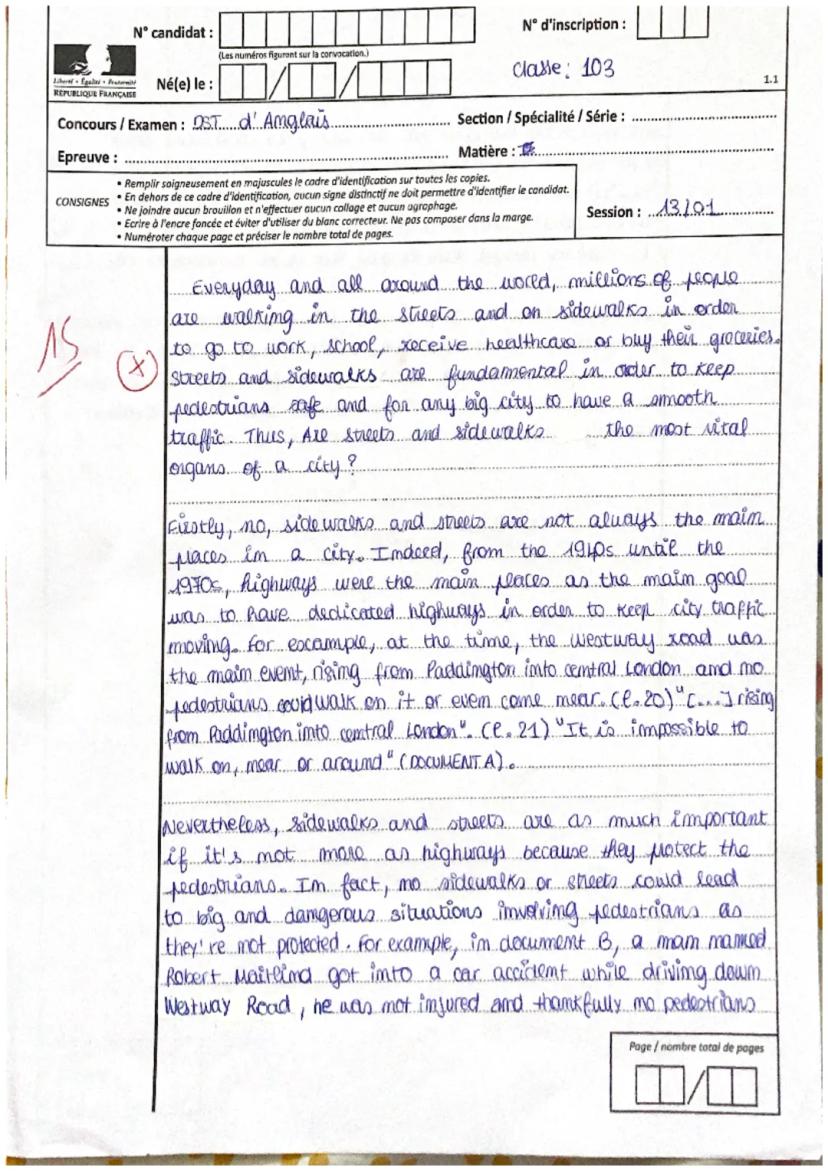 N° candidat :
N° d'inscription :
(Les numéros figurant sur la convocation.)
Classe : 103
Né(e) le : / /
1.1
Liberté • Égalité • Fraternité
RÉPUBLIQUE FRANÇAISE
Concours / Examen : DST d'Anglais Section / Spécialité / Série :
Epreuve : Matière :
CONSIGNES
• Remplir soigneusement en majuscules le cadre d'identification sur toutes les copies.
• En dehors de ce cadre d'identification, aucun signe distinctif ne doit permettre d'identifier le candidat.
• Ne joindre aucun brouillon et n'effectuer aucun collage et aucun agraphage.
• Ecrire à l'encre foncée et éviter d'utiliser du blanc correcteur. Ne pas composer dans la marge.
• Numéroter chaque page et préciser le nombre total de pages.
Session : 13/01
Everyday and all around the world, millions of people
are walking in the streets and on sidewalks in order
15
to go to work, school, receive healthcare or buy their groceries.
Streets and sidewalks are fundamental in order to keep
pedestrians safe and for any big city to have a smooth
traffic. Thus, Are streets and sidewalks the most vital
organs of a city?
Firstly, no, sidewalks and streets are not always the main
places in a city. Indeed, from the 1940s until the
1970s, highways were the main places as the main goal
was to have dedicated highways in order to keep city traffic
moving. For escample, at the time, the westway road was
the main event, rising from Paddington into central London and no
pedestrians could walk on it or even come near. (l.20) "[...] rising
from Paddington into central London". (l.21) "It is impossible to
walk on, near or around" (DOCUMENT A).
Nevertheless, sidewalks and streets are as much important
if it's not more as highways because they protect the
pedestrians. In fact, no sidewalks or streets could lead
to big and dangerous situations involving pedestrians as
they're not protected. For example, in document B, a man named
Robert Maitlind got into a car accident while driving down
Westway Road, he was not injured and thankfully no pedestrians
Page / nombre total de pages
/